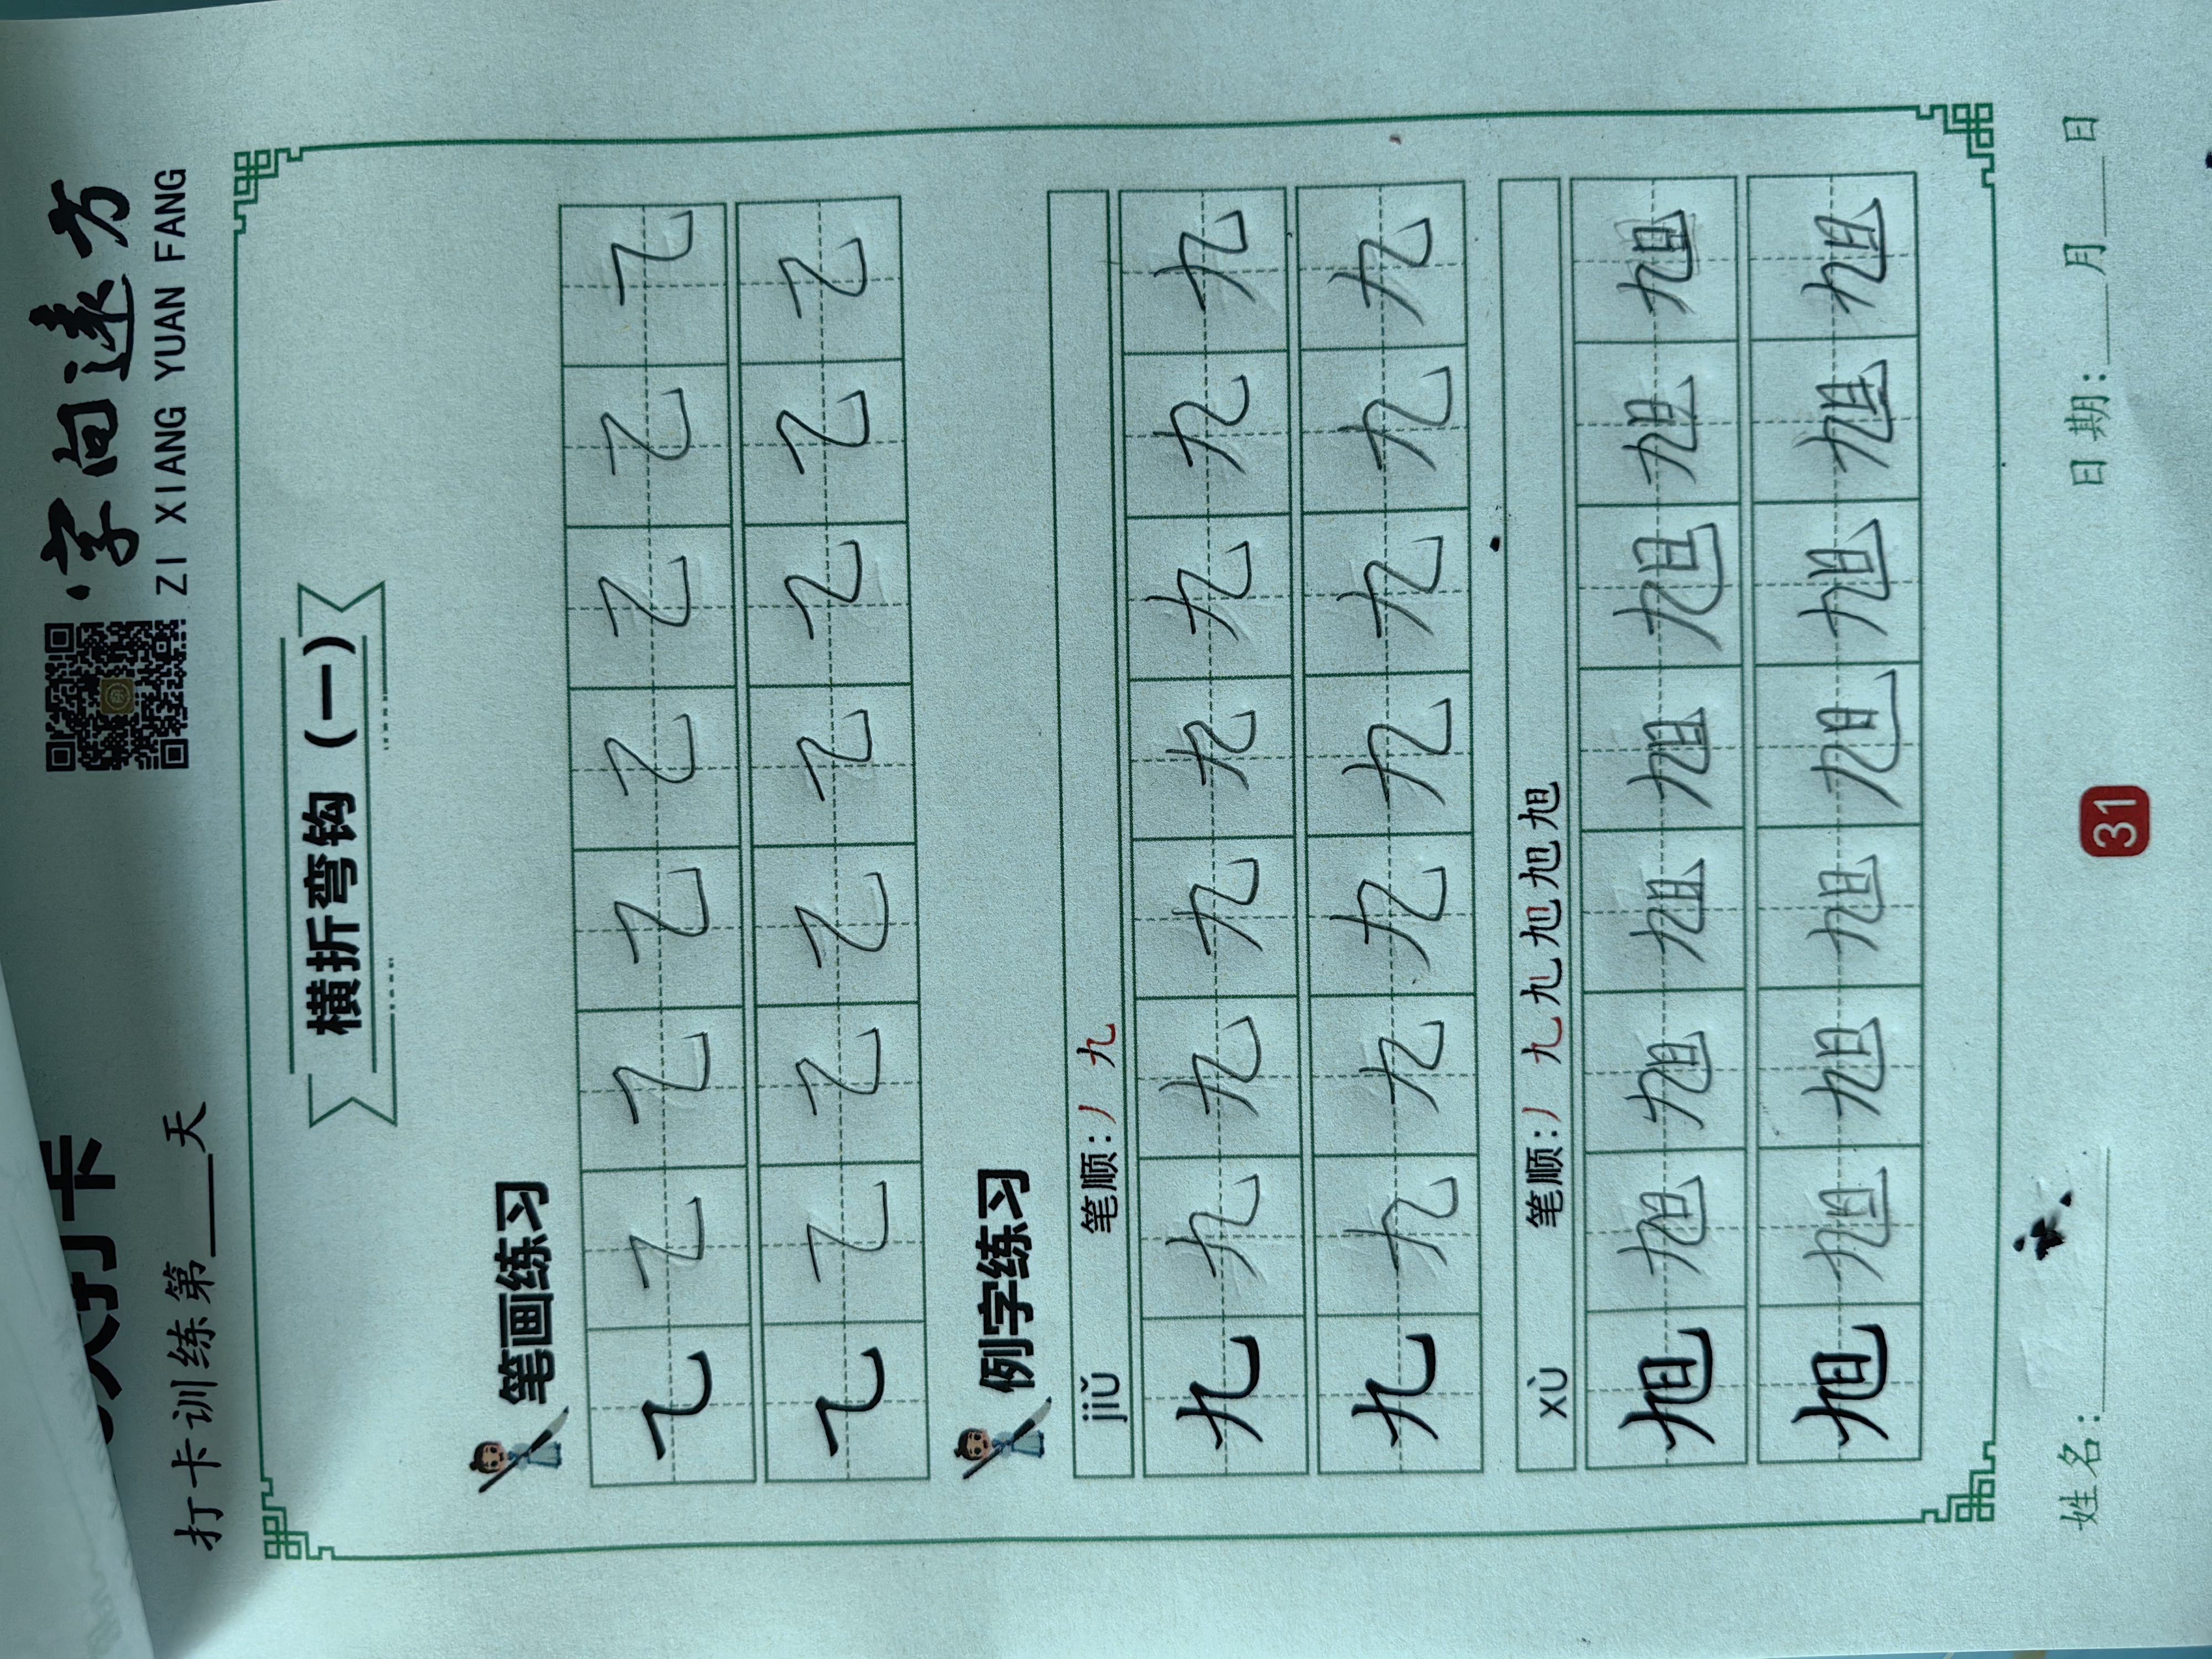 ·字向远方
ZI XIANG YUAN FANG
打卡
打卡训练第___天
横折弯钩（一）
笔画练习
乙 乙 乙 乙 乙 乙 乙 乙
乙 乙 乙 乙 乙 乙 乙 乙
例字练习
jiǔ 笔顺：丿 九
九 九 九 九 九 九 九 九
九 九 九 九 九 九 九 九
xù 笔顺：丿 九 九 旭 旭 旭 旭
旭 旭 旭 旭 旭 旭 旭 旭
旭 旭 旭 旭 旭 旭 旭 旭
姓名：______ 日期：___月___日
31